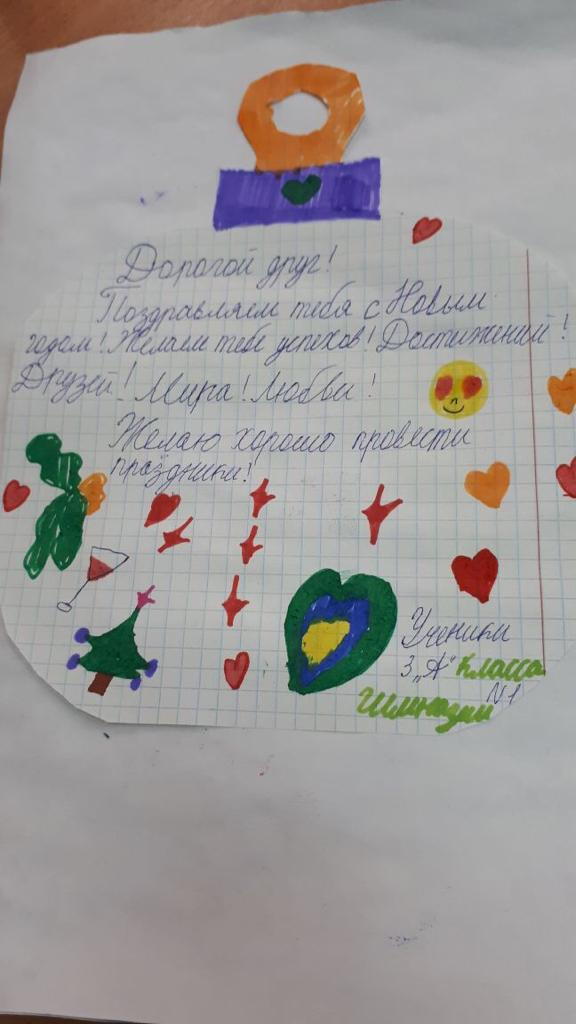 Дорогой друг!
Поздравляем тебя с Новым
годом! Желаем тебе успехов! Достижений!
Друзей! Мира! Любви!
Желаю хорошо провести
праздники!
Ученики
3 „А" класса
№1